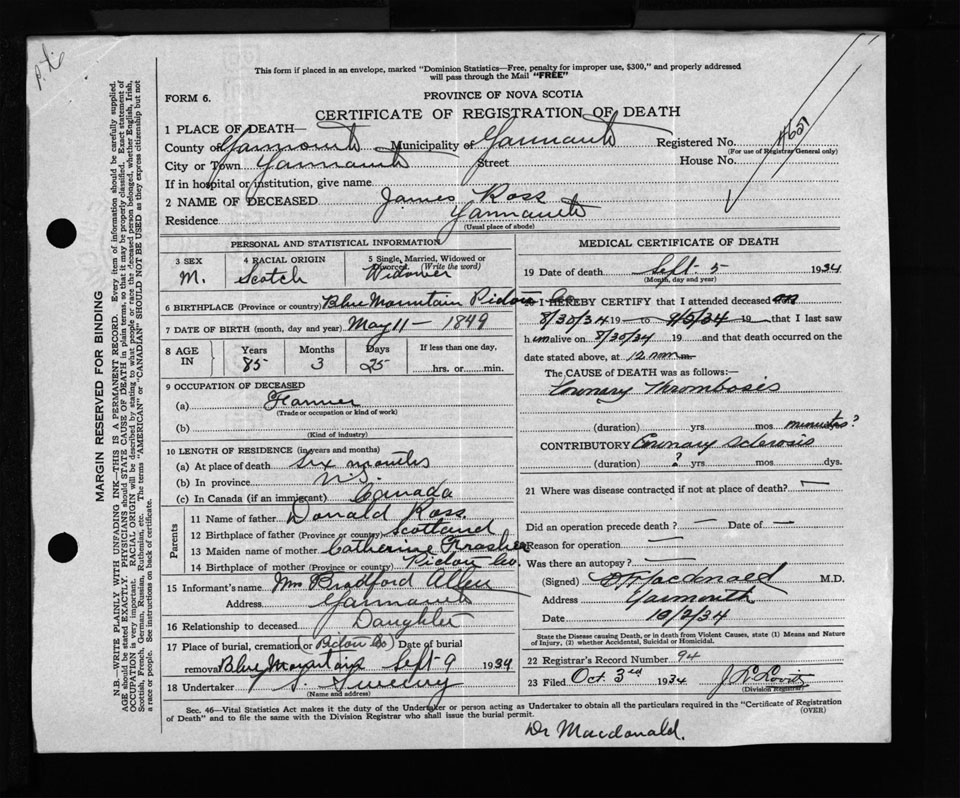 This form if placed in an envelope, marked "Dominion Statistics—Free, penalty for improper use, $300," and properly addressed
will pass through the Mail "FREE"
FORM 6.
PROVINCE OF NOVA SCOTIA
CERTIFICATE OF REGISTRATION OF DEATH
1 PLACE OF DEATH—
County of Yarmouth Municipality of Yarmouth Registered No.
(For use of Registrar General only)
City or Town Yarmouth Street House No.
If in hospital or institution, give name
2 NAME OF DECEASED James Ross
Residence Yarmouth
(Usual place of abode)
PERSONAL AND STATISTICAL INFORMATION
3 SEX M.
4 RACIAL ORIGIN Scotch
5 Single, Married, Widowed or Divorced (Write the word) Widower
6 BIRTHPLACE (Province or country) Blue Mountain Pictou Co
7 DATE OF BIRTH (month, day and year) May 11 — 1849
8 AGE IN Years 85 Months 3 Days 25 If less than one day, hrs. or min.
9 OCCUPATION OF DECEASED
(a) Farmer
(Trade or occupation or kind of work)
(b)
(Kind of industry)
10 LENGTH OF RESIDENCE (in years and months)
(a) At place of death Six months
(b) In province N.S.
(c) In Canada (if an immigrant) Canada
Parents
11 Name of father Donald Ross
12 Birthplace of father (Province or country) Scotland
13 Maiden name of mother Catherine Frasher
14 Birthplace of mother (Province or country) Pictou Co
15 Informant's name Mrs Bradford Allen
Address Yarmouth
16 Relationship to deceased Daughter
17 Place of burial, cremation or removal (Pictou Co) Blue Mountain Date of burial Sept-9 1934
18 Undertaker Sweeny
(Name and address)
MEDICAL CERTIFICATE OF DEATH
19 Date of death Sept. 5 1934
(Month, day and year)
20 I HEREBY CERTIFY that I attended deceased
8/30/34 19 to 9/5/34 19 that I last saw
him alive on 8/30/34 19 and that death occurred on the
date stated above, at 12 noon m.
The CAUSE of DEATH was as follows:—
Coronary Thrombosis
(duration) yrs mos minutes?
CONTRIBUTORY Coronary Sclerosis
(duration) ? yrs mos. dys.
21 Where was disease contracted if not at place of death? —
Did an operation precede death? — Date of —
Reason for operation —
Was there an autopsy? —
(Signed) Macdonald M.D.
Address Yarmouth
Date 10/2/34
State the Disease causing Death, or in death from Violent Causes, state (1) Means and Nature
of Injury, (2) whether Accidental, Suicidal or Homicidal.
22 Registrar's Record Number 94
23 Filed Oct 3rd 1934
(Division Registrar)
Sec. 46—Vital Statistics Act makes it the duty of the Undertaker or person acting as Undertaker to obtain all the particulars required in the "Certificate of Registration
of Death" and to file the same with the Division Registrar who shall issue the burial permit. (OVER)
Dr Macdonald.
MARGIN RESERVED FOR BINDING
N.B.—WRITE PLAINLY WITH UNFADING INK—THIS IS A PERMANENT RECORD. Every item of information should be carefully supplied.
AGE should be stated EXACTLY. PHYSICIANS should STATE CAUSE OF DEATH in plain terms, so that it may be properly classified. Exact statement of
OCCUPATION is very important. RACIAL ORIGIN will be described by stating to what people or race the deceased person belonged, whether English, Irish,
Scottish, French, German, Russian, Ruthenian, etc. The terms "AMERICAN" or "CANADIAN" SHOULD NOT BE USED as they express citizenship but not
a race or people. See instructions on back of certificate.